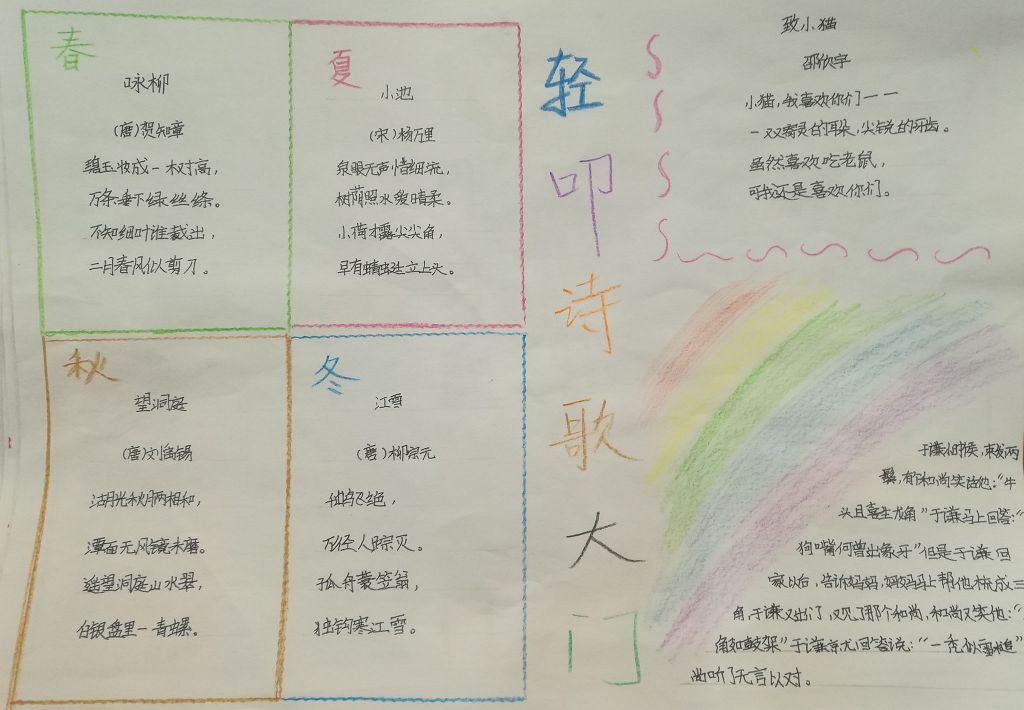 春
咏柳
(唐)贺知章
碧玉妆成一树高，
万条垂下绿丝绦。
不知细叶谁裁出，
二月春风似剪刀。
夏
小池
(宋)杨万里
泉眼无声惜细流，
树荫照水爱晴柔。
小荷才露尖尖角，
早有蜻蜓立上头。
秋
望洞庭
(唐)刘禹锡
湖光秋月两相和，
潭面无风镜未磨。
遥望洞庭山水翠，
白银盘里一青螺。
冬
江雪
(唐)柳宗元
千山鸟飞绝，
万径人踪灭。
孤舟蓑笠翁，
独钓寒江雪。
轻
叩
诗
歌
大
门
致小猫
邵欣宇
小猫，我喜欢你们一一
一双双灵的耳朵，尖锐的牙齿。
虽然喜欢吃老鼠，
可我还是喜欢你们。
于谦小时候，梳两
鬓，有个和尚笑话他：“牛
头且喜生龙角”于谦马上回答：“
狗嘴何曾出象牙”但是于谦回
家以后，告诉妈妈，妈妈马上帮他梳成三
角，于谦又出门，又见了那个和尚，和尚又笑他：“
角如鼓架”于谦京尤回答说：“一秃似雷槌”
尚听了无言以对。